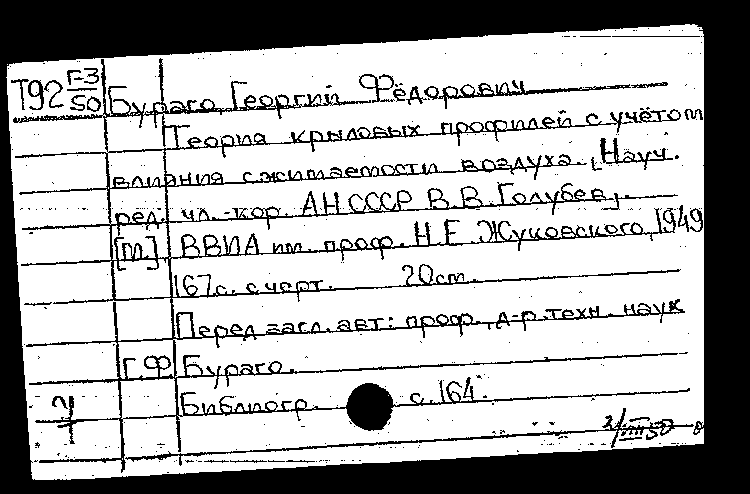 Т92 Г-3/50 Бураго, Георгий Фёдорович
Теория крыловых профилей с учётом
влияния сжимаемости воздуха. [Науч.
ред. чл.-кор. АН СССР В.В. Голубев].
[М.], ВВИА им. проф. Н.Е. Жуковского, 1949
167 с. с черт. 20 см.
Перед загл. авт: проф., д-р. техн. наук
Г.Ф. Бураго.
Библиогр. с. 164.
2/VIII 50